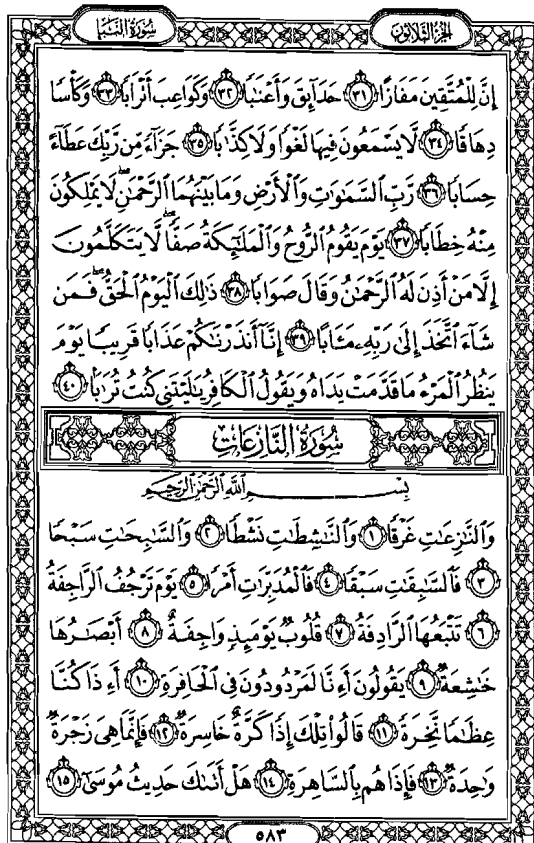 الجزء الثلاثون
سورة النبإ
إِنَّ لِلْمُتَّقِينَ مَفَازًا ﴿٣١﴾ حَدَآئِقَ وَأَعْنَٰبًا ﴿٣٢﴾ وَكَوَاعِبَ أَتْرَابًا ﴿٣٣﴾ وَكَأْسًا
دِهَاقًا ﴿٣٤﴾ لَّا يَسْمَعُونَ فِيهَا لَغْوًا وَلَا كِذَّٰبًا ﴿٣٥﴾ جَزَآءً مِّن رَّبِّكَ عَطَآءً
حِسَابًا ﴿٣٦﴾ رَّبِّ ٱلسَّمَٰوَٰتِ وَٱلْأَرْضِ وَمَا بَيْنَهُمَا ٱلرَّحْمَٰنِ ۖ لَا يَمْلِكُونَ
مِنْهُ خِطَابًا ﴿٣٧﴾ يَوْمَ يَقُومُ ٱلرُّوحُ وَٱلْمَلَٰٓئِكَةُ صَفًّا ۖ لَّا يَتَكَلَّمُونَ
إِلَّا مَنْ أَذِنَ لَهُ ٱلرَّحْمَٰنُ وَقَالَ صَوَابًا ﴿٣٨﴾ ذَٰلِكَ ٱلْيَوْمُ ٱلْحَقُّ ۖ فَمَن
شَآءَ ٱتَّخَذَ إِلَىٰ رَبِّهِۦ مَـَٔابًا ﴿٣٩﴾ إِنَّآ أَنذَرْنَٰكُمْ عَذَابًا قَرِيبًا يَوْمَ
يَنظُرُ ٱلْمَرْءُ مَا قَدَّمَتْ يَدَاهُ وَيَقُولُ ٱلْكَافِرُ يَٰلَيْتَنِى كُنتُ تُرَٰبًۢا ﴿٤٠﴾
سُورَةُ النَّازِعَاتِ
بِسْمِ ٱللَّهِ ٱلرَّحْمَٰنِ ٱلرَّحِيمِ
وَٱلنَّٰزِعَٰتِ غَرْقًا ﴿١﴾ وَٱلنَّٰشِطَٰتِ نَشْطًا ﴿٢﴾ وَٱلسَّٰبِحَٰتِ سَبْحًا
﴿٣﴾ فَٱلسَّٰبِقَٰتِ سَبْقًا ﴿٤﴾ فَٱلْمُدَبِّرَٰتِ أَمْرًا ﴿٥﴾ يَوْمَ تَرْجُفُ ٱلرَّاجِفَةُ
﴿٦﴾ تَتْبَعُهَا ٱلرَّادِفَةُ ﴿٧﴾ قُلُوبٌ يَوْمَئِذٍ وَاجِفَةٌ ﴿٨﴾ أَبْصَٰرُهَا
خَٰشِعَةٌ ﴿٩﴾ يَقُولُونَ أَءِنَّا لَمَرْدُودُونَ فِى ٱلْحَافِرَةِ ﴿١٠﴾ أَءِذَا كُنَّا
عِظَٰمًا نَّخِرَةً ﴿١١﴾ قَالُوا۟ تِلْكَ إِذًا كَرَّةٌ خَاسِرَةٌ ﴿١٢﴾ فَإِنَّمَا هِىَ زَجْرَةٌ
وَٰحِدَةٌ ﴿١٣﴾ فَإِذَا هُم بِٱلسَّاهِرَةِ ﴿١٤﴾ هَلْ أَتَىٰكَ حَدِيثُ مُوسَىٰٓ ﴿١٥﴾
٥٨٣